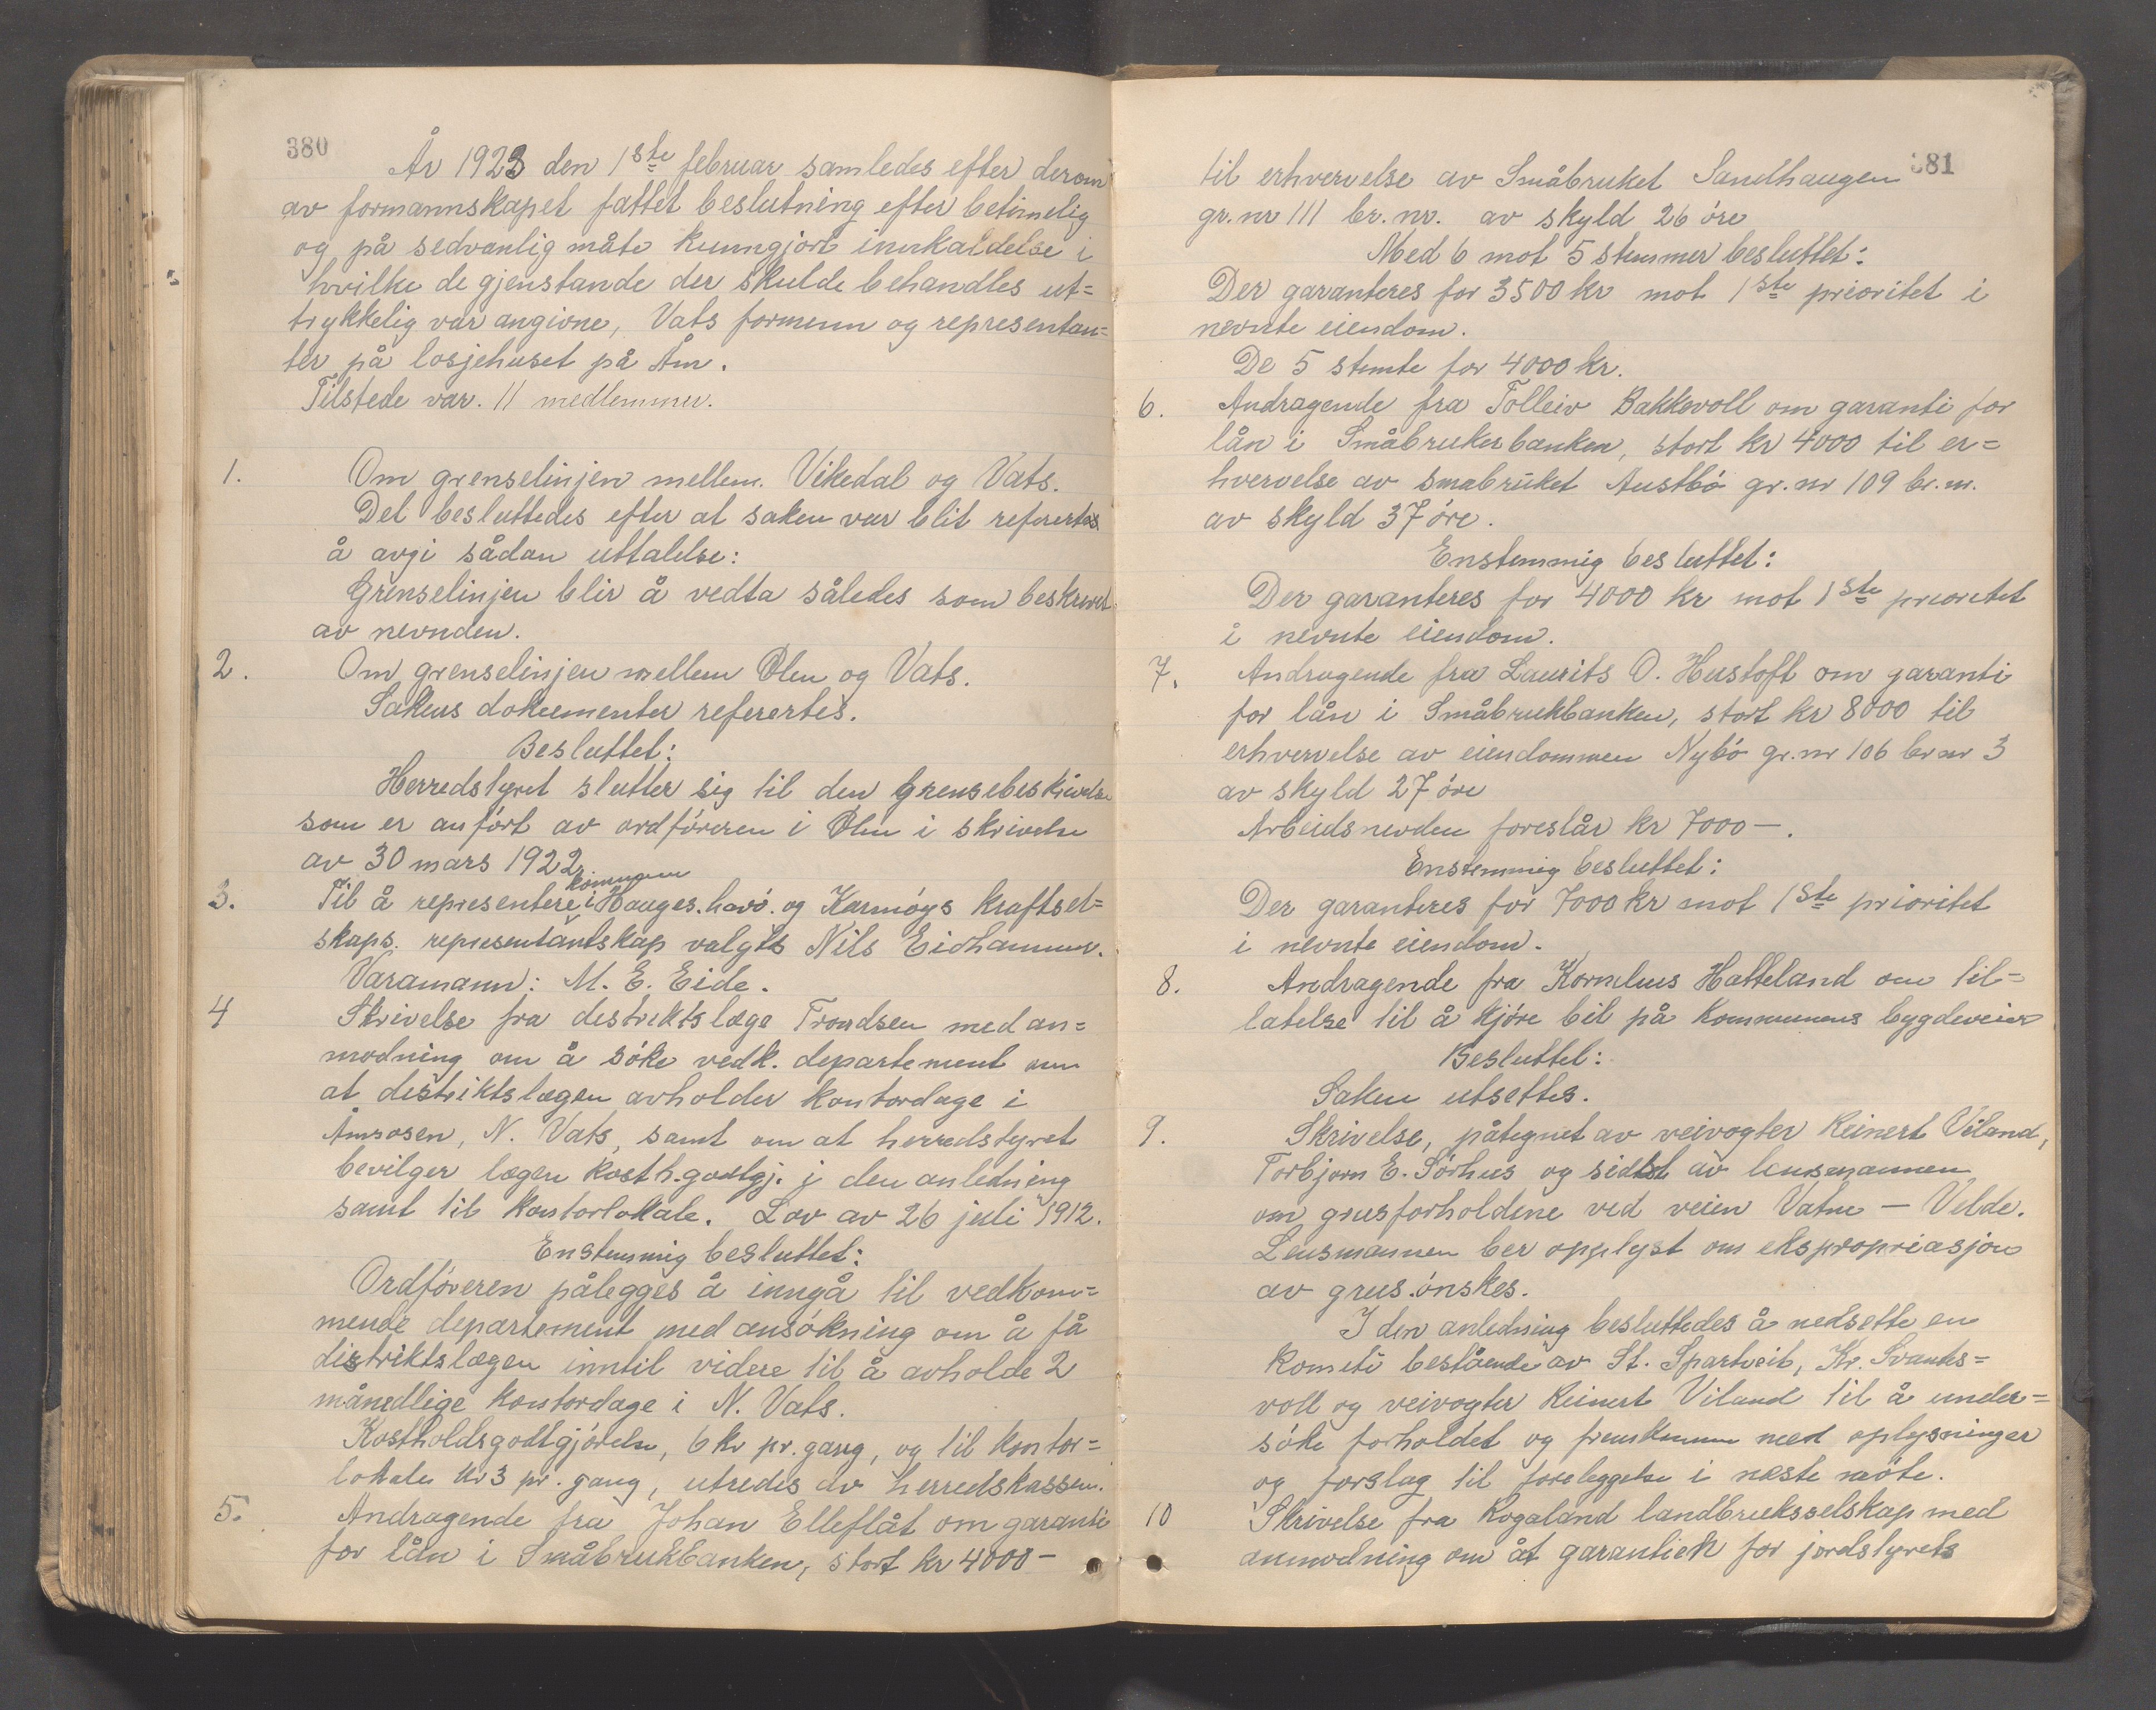 380
År 1923 den 1ste februar samledes efter derom
av formannskapet fattet beslutning efter betimelig
og på sedvanlig måte kunngjort innkaldelse i
hvilke de gjenstande der skulde behandles ut=
trykkelig var angivne, Vats formenn og representan=
ter på losjehuset på Åm.
Tilstede var. 11 medlemmer.
1. Om grenselinjen mellem. Vikedal og Vats.
Det besluttedes efter at saken var blit referertes
å avgi sådan uttalelse:
Grenselinjen blir å vedta således som beskrevet
av nevnden.
2. Om grenselinjen mellem Ølen og Vats.
Sakens dokumenter refertes.
Besluttet:
Herredstyret slutter sig til den Grensebeskrivelse
som er anført av ordføreren i Ølen i skrivelse
av 30 mars 1922.
kommunen
3. Til å representere i Hauges. havö. og Karmöys kraftsel=
skaps. representantskap valgtes Nils Eidhammer.
Varamann: M. E. Eide.
4 Skrivelse fra destriktslæge Trondsen med an=
modning om å söke vedk. departement om
at destriktslægen avholder kontordage i
Åmsosen, N. Vats, samt om at herredstyret
bevilger lægen kosth.godtgj. i den anledning
samt til kontorlokale. Lov av 26 juli 1912.
Enstemmig besluttet:
Ordføreren pålegges å inngå til vedkom=
mende departement med ansökning om å få
distriktslægen inntil videre til å avholde 2
månedlige kontordage i N. Vats.
Kostholdsgodtgjörelse, 6 kr pr. gang, og til kontor=
lokale kr 3 pr. gang, utredes av herredskassen.
5. Andragende fra Johan Elleflåt om garanti
for lån i Småbrukbanken, stort kr 4000 -
381
til erhvervelse av Småbruket Sandhaugen
gr. nr 111 br. nr. av skyld 26 öre
Med 6 mot 5 stemmer besluttet:
Der garanteres for 3500 kr mot 1ste prioritet i
nevnte eiendom.
De 5 stemte for 4000 kr.
6. Andragende fra Tolleiv Bakkevoll om garanti for
lån i Småbrukerbanken, stort kr 4000 til er=
hvervelse av småbruket Austbö gr. nr 109 br. nr.
av skyld 37 öre.
Enstemmig besluttet:
Der garanteres for 4000 kr mot 1ste prioritet
i nevnte eiendom.
7. Andragende fra Laurits O. Hustoft om garanti
for lån i Småbrukbanken, stort kr 8000 til
erhvervelse av eiendommen Nybö gr. nr 106 br nr 3
av skyld 27 öre
Arbeidsnevden foreslår kr 7000 -.
Enstemmig besluttet:
Der garanteres for 7000 kr mot 1ste prioritet
i nevnte eiendom.
8. Andragende fra Kornelius Hatteland om til=
latelse til å kjöre bil på kommunens bygdeveier
Besluttet:
Saken utsettes.
9. Skrivelse, påtegnet av veivogter Reinert Viland,
Torbjorn E. Sörhus og sidst av lensmannen
om grusforholdene ved veien Vatne — Velde.
Lensmannen ber opplyst om ekspropriasjon
av grus önskes.
I den anledning besluttedes å nedsette en
komiti bestående av St. Spartveit, Kr. Svantes=
voll og veivogter Reinert Viland til å under=
söke forholdet og fremkomme med oplysninger
og forslag til foreleggelse i næste möte.
10 Skrivelse fra Rogaland landbruksselskap med
anmodning om åt garantien for jordstyrets